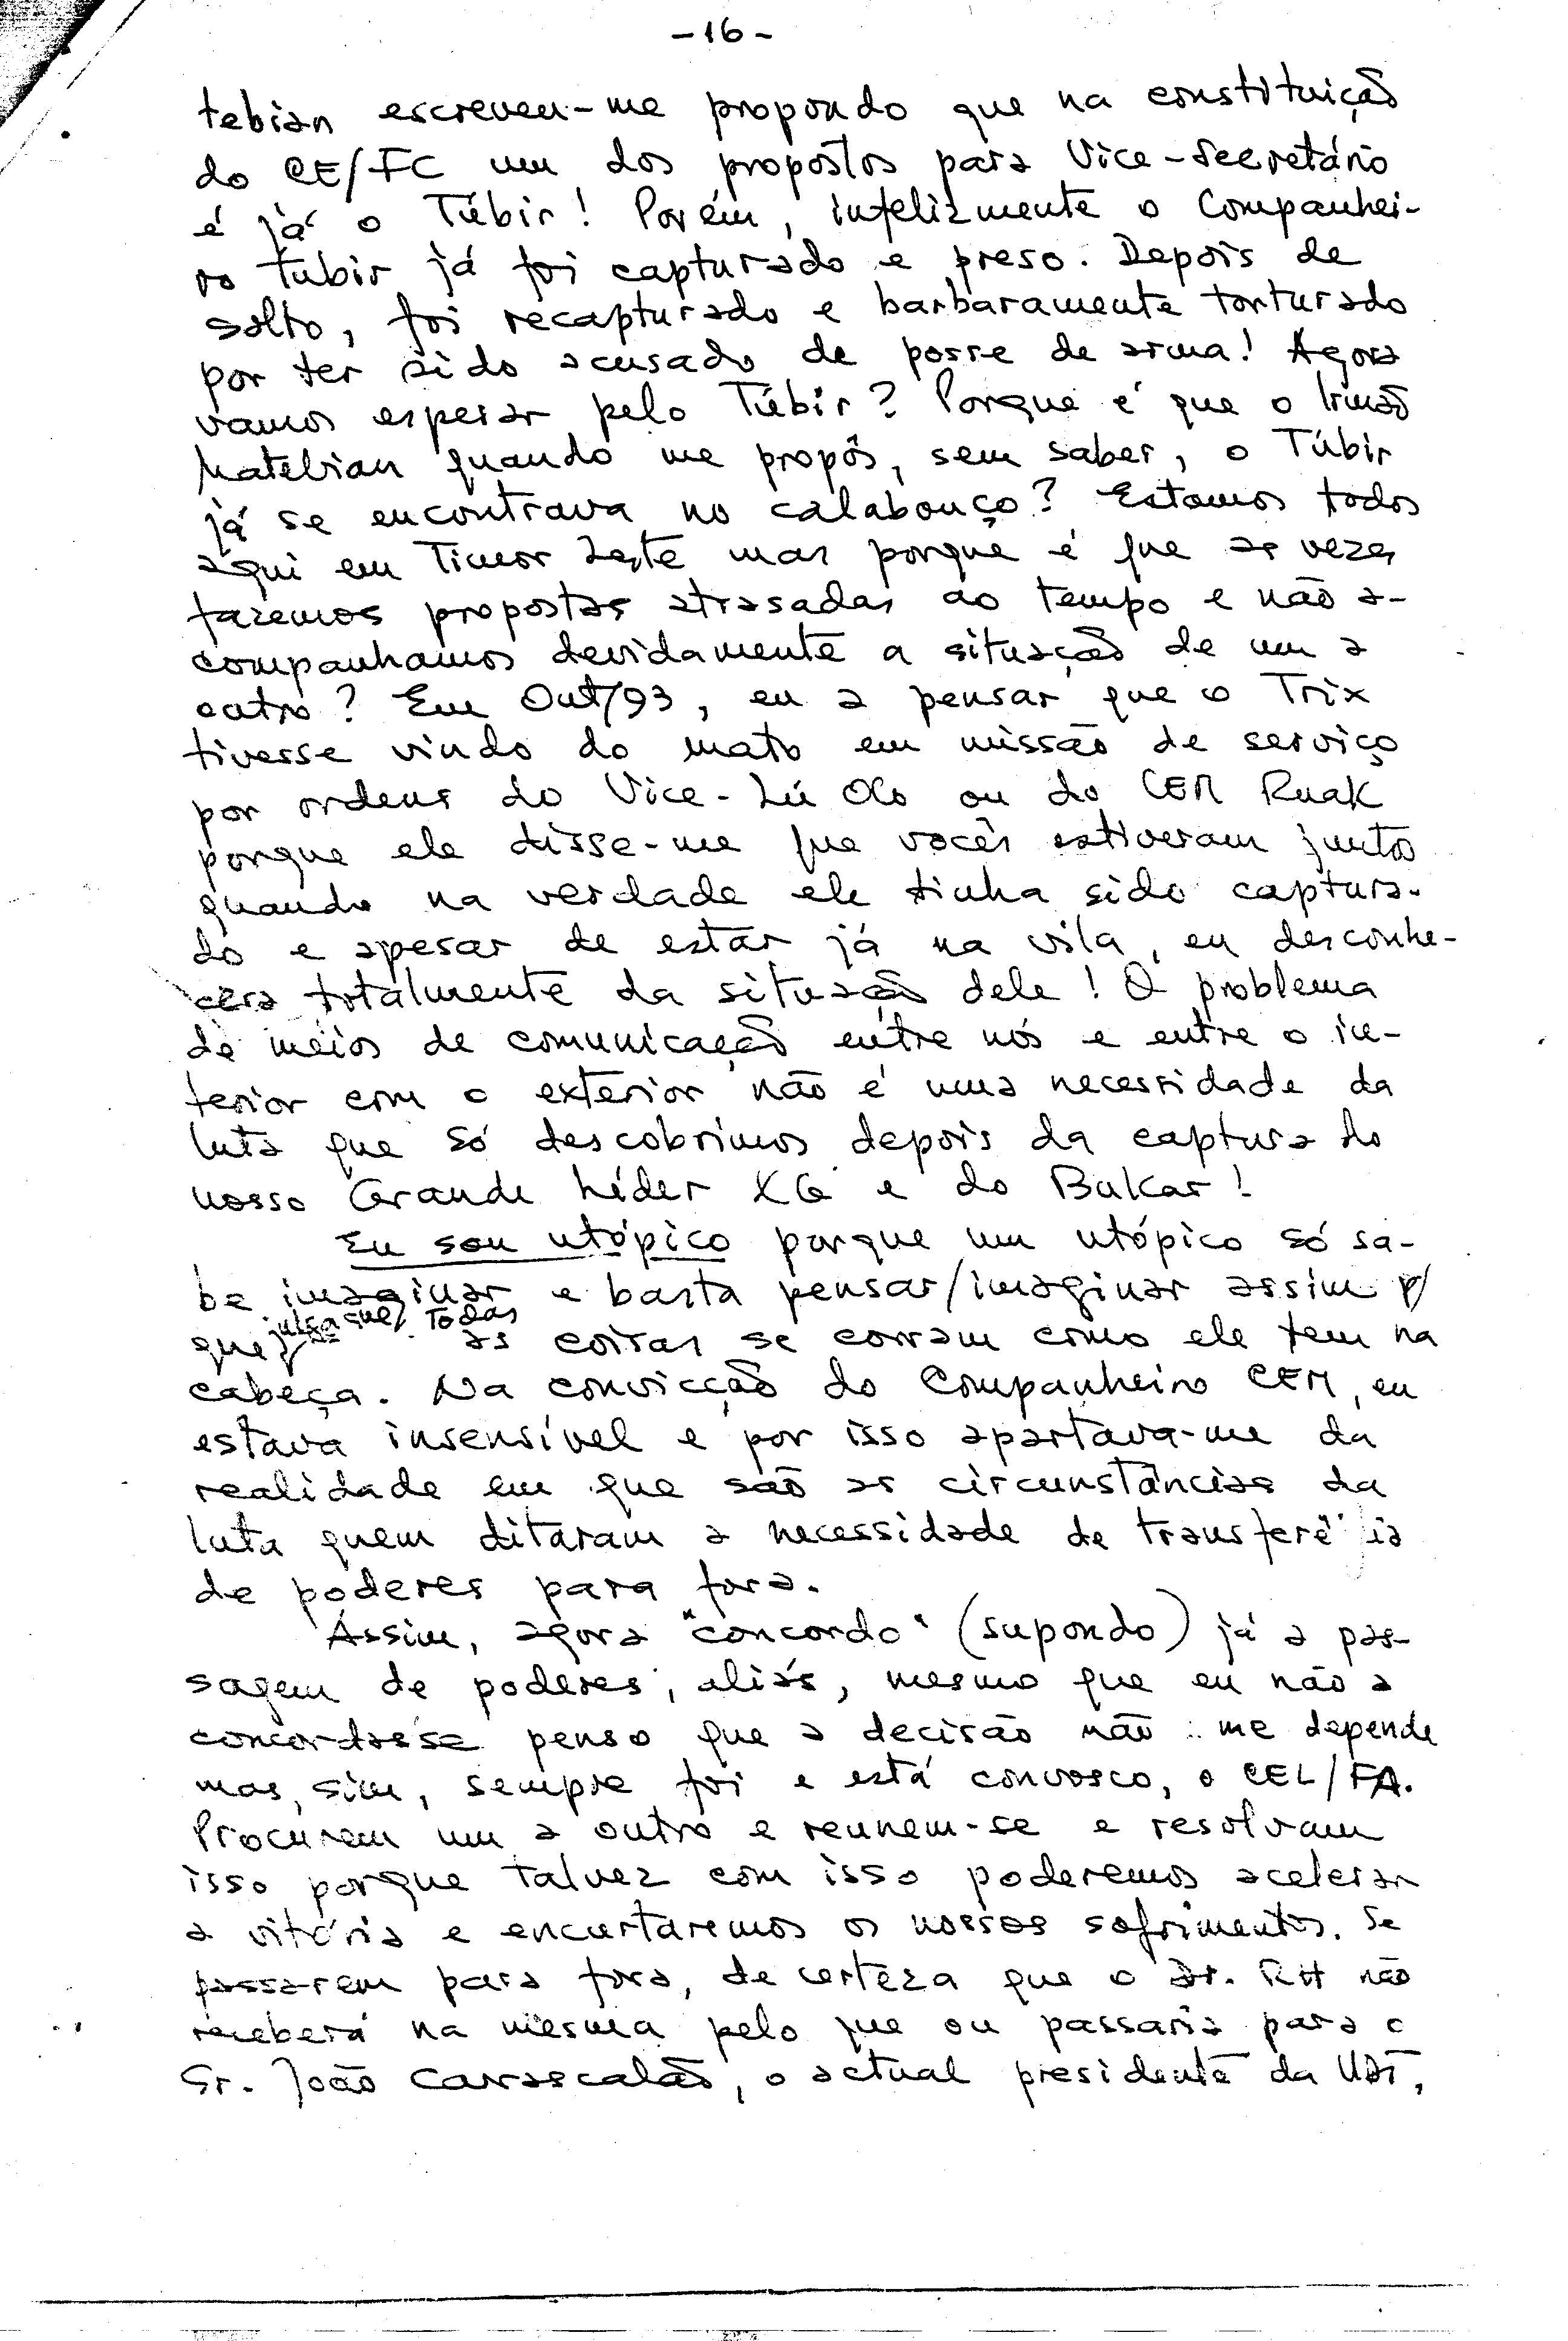 -16-
tebian escreveu-me propondo que na constituição
do CE/FC um dos propostos para Vice-Secretário
é já o Túbir! Porém, infelizmente o Companhei-
ro Tubir já foi capturado e preso. Depois de
solto, foi recapturado e barbaramente torturado
por ter sido acusado de posse de arma! Agora
vamos esperar pelo Túbir? Porque é que o Irmão
Matebian quando me propôs, sem saber, o Túbir
já se encontrava no calabouço? Estamos todos
aqui em Timor Leste mas porque é que as vezes
fazemos propostas atrasadas ao tempo e não a-
companhamos devidamente a situação de um a
outro? Em Out/93, eu a pensar que o Trix
tivesse vindo do mato em missão de serviço
por ordens do Vice-Lú Olo ou do CEM Ruak
porque ele disse-me que vocês estiveram juntos
quando na verdade ele tinha sido captura-
do e apesar de estar já na vila, eu desconhe-
cera totalmente da situação dele! O problema
de meios de comunicação entre nós e entre o in-
terior com o exterior não é uma necessidade da
luta que só descobrimos depois da captura do
nosso Grande Líder XG e do Bulkar!
Eu sou utópico porque um utópico só sa-
be imaginar e basta pensar/imaginar assim p/
que julga que todas as coisas se corram como ele tem na
cabeça. Na convicção do Companheiro CEM, eu
estava insensível e por isso apartava-me da
realidade em que são as circunstâncias da
luta quem ditaram a necessidade de transferê ia
de poderes para fora.
Assim, agora "concordo" (supondo) já a pas-
sagem de poderes; aliás, mesmo que eu não a
concordasse penso que a decisão não me depende
mas, sim, sempre foi e está convosco, o CEL/FA.
Procurem um a outro e reunem-se e resolvam
isso porque talvez com isso poderemos acelerar
a vitória e encurtaremos os nossos sofrimentos. Se
passarem para fora, de certeza que o Dr. RH não
receberá na mesma pelo que ou passaria para o
Sr. João Carrascalão, o actual presidente da UDT,